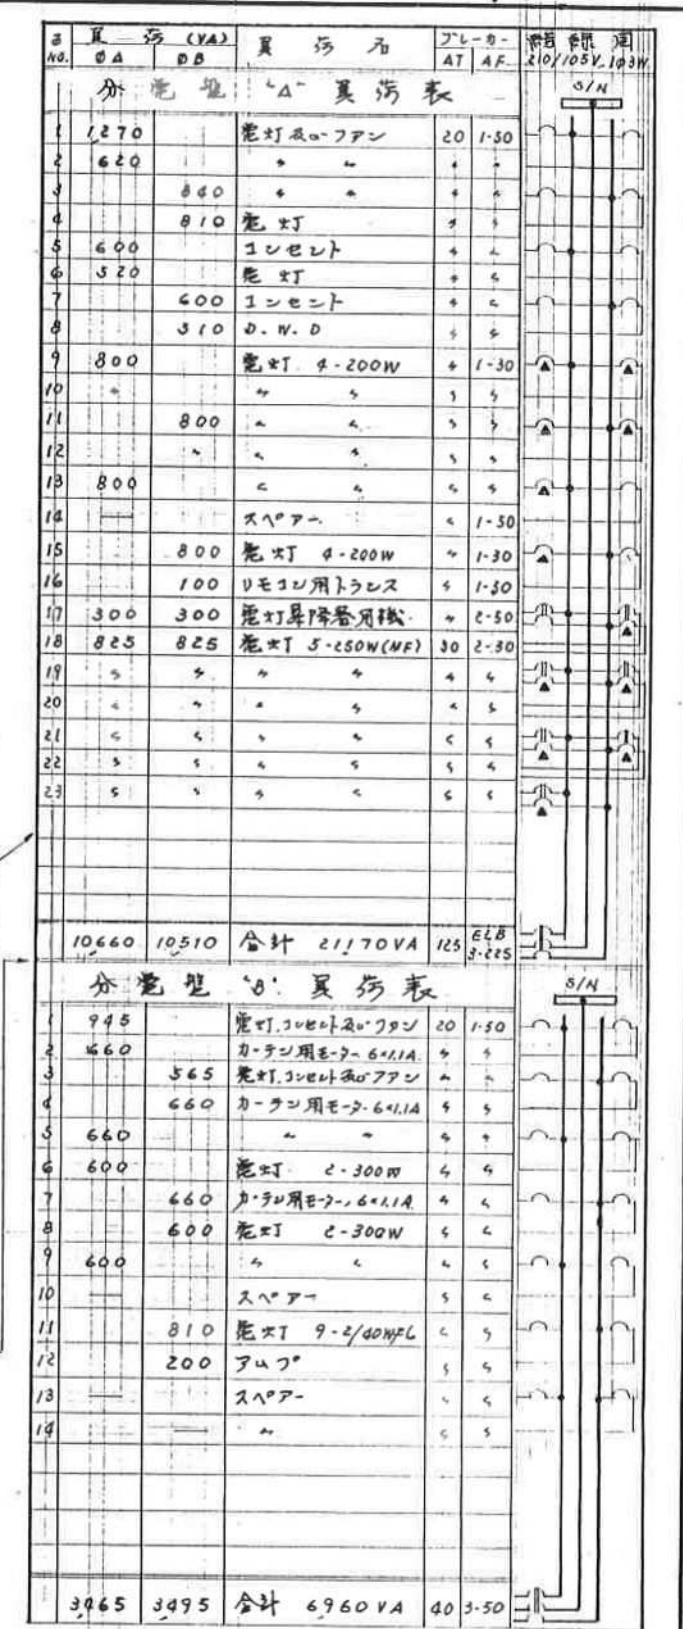 NO. 負荷 (VA) 負荷名 ブレーカー 結線図
ΦA ΦB AT AF 210/105V. 1Φ3W
分電盤 "A" 負荷表 S/N
1 1,270 電灯及ビファン 20 1-50
2 620 〃 〃 〃 〃
3 840 〃 〃 〃 〃
4 810 電灯 〃 〃
5 600 コンセント 〃 〃
6 520 電灯 〃 〃
7 600 コンセント 〃 〃
8 310 D.W.D 〃 〃
9 800 電灯 4-200W 〃 1-30
10 〃 〃 〃 〃 〃
11 800 〃 〃 〃 〃
12 〃 〃 〃 〃 〃
13 800 〃 〃 〃 〃
14 — スペアー 〃 1-50
15 800 電灯 4-200W 〃 1-30
16 100 リモコン用トランス 〃 1-50
17 300 300 電灯昇降 〃 2-50
18 825 825 電灯 5-250W(MF) 30 2-30
19 〃 〃 〃 〃 〃 〃
20 〃 〃 〃 〃 〃 〃
21 〃 〃 〃 〃 〃 〃
22 〃 〃 〃 〃 〃 〃
23 〃 〃 〃 〃 〃 〃
10,660 10,510 合計 21,170VA 125 ELB 3-225
分電盤 "B" 負荷表 S/N
1 945 電灯.コンセント及ビファン 20 1-50
2 660 カーテン用モーター 6×1.1A 〃 〃
3 565 電灯.コンセント及ビファン 〃 〃
4 660 カーテン用モーター 6×1.1A 〃 〃
5 660 〃 〃 〃 〃
6 600 電灯 2-300W 〃 〃
7 660 カーテン用モーター, 6×1.1A 〃 〃
8 600 電灯 2-300W 〃 〃
9 600 〃 〃 〃 〃
10 — スペアー 〃 〃
11 810 電灯 9-2/40WFL 〃 〃
12 200 アムプ 〃 〃
13 — スペアー 〃 〃
14 — 〃 〃 〃
3,465 3,495 合計 6,960VA 40 3-50